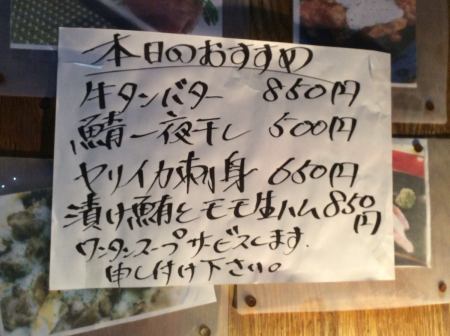 本日のおすすめ
牛タンバター 850円
鯖一夜干し 500円
ヤリイカ刺身 650円
漬け鮪とモモ生ハム850円
ワンタンスープサービスします.
申し付け下さい。